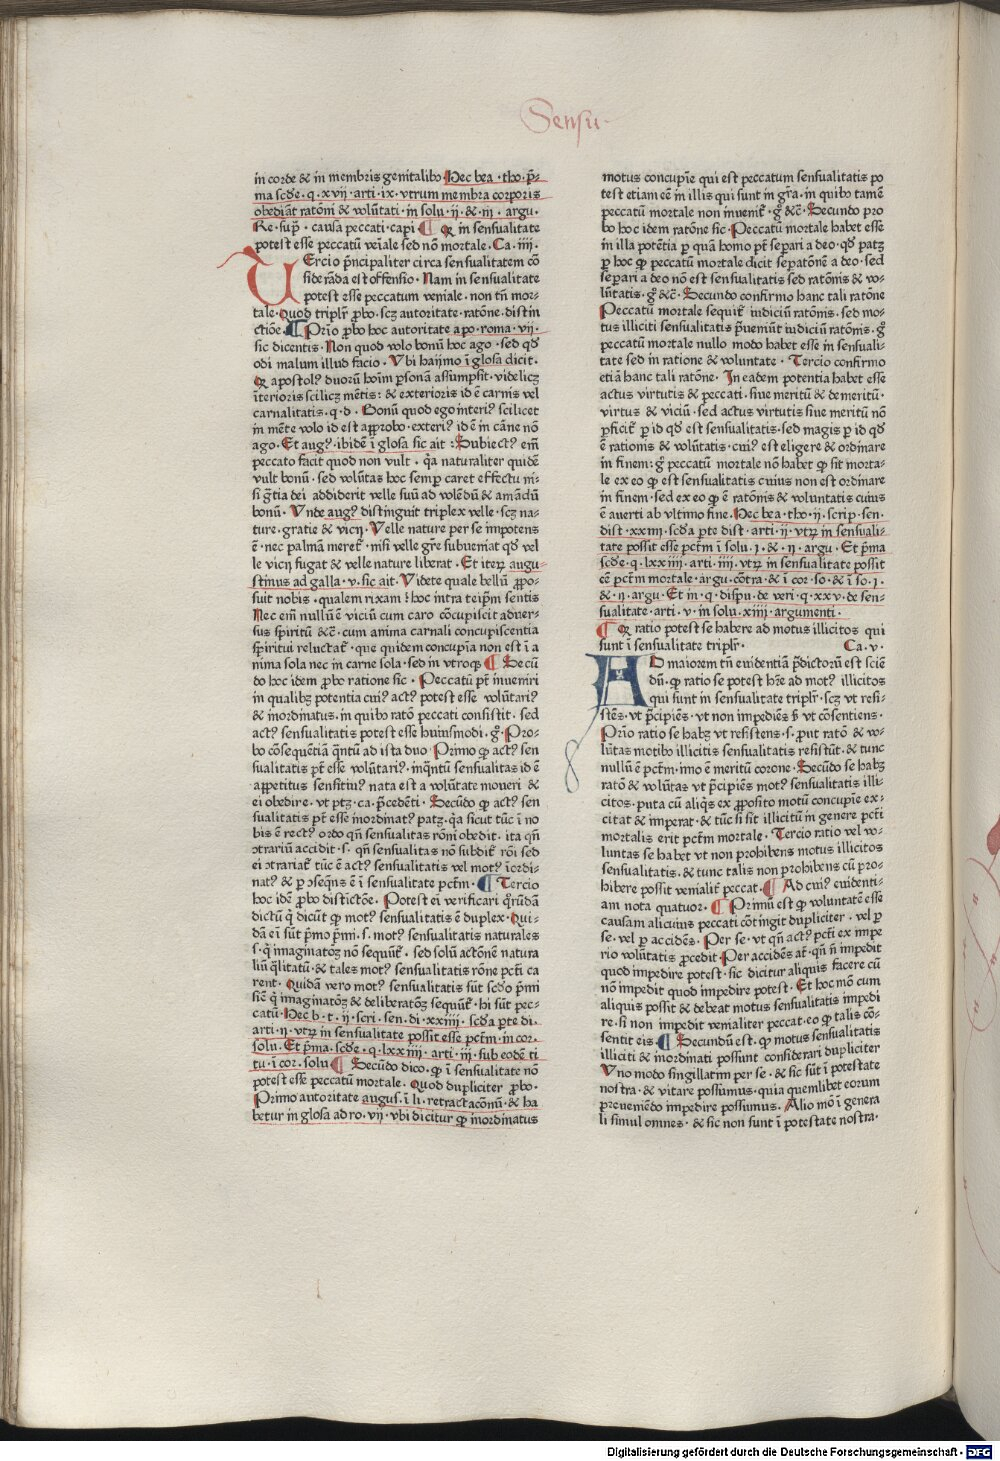 Sensu
in corde & in membris genitalibꝰ Hec bea · tho · p̄-
ma scd̄e · q · xvij · arti · ix · vtrum membra corporis
obediāt ratōni & volūtati · in solu · ij · & · iij · argu ·
Re · sup̄ · causa peccati · capi ¶ Qꝫ in sensualitate
potest esse peccatū veīale sed nō mortale · Ca · iiij ·
TErcio p̄ncipaliter circa sensualitatem cō
siderāda est offensio · Nam in sensualitate
potest esse peccatum veniale · non tn̄ mor-
tale · Quod triplr̄ ꝓbo · scꝫ autoritate · ratōne · distin
ctiōe · ¶ Prīo ꝓbo hoc autoritate apo · roma · vij ·
sic dicentis · Non quod volo bonū hoc ago · sed qd̄
odi malum illud facio · Vbi haijmo ī glosa dicit ·
Qꝫ apostolꝰ duorū hoīm ꝑsonā assumpsit · videlicꝫ
īterioris scilicꝫ mētis: & exterioris id ē carnis vel
carnalitatis · q · d · Bonū quod ego interiꝰ scilicet
in mēte volo id est approbo · exteriꝰ id ē in cāne nō
ago · Et augꝰ · ibidē ī glosa sic ait : Subiectꝰ em̄
peccato facit quod non vult · qꝛ naturaliter quidē
vult bonū · sed volūtas hoc semꝑ caret effectu ni-
si gr̄tia dei addiderit velle suū ad volēdū & amādū
bonū · Vnde augꝰ distinguit triplex velle · scꝫ na-
ture · gratie & vicij · Velle nature per se impotens
ē · nec palmā meret᷑ · nisi velle gr̄e subueniat qd̄ vel
le vicij fugat & velle nature liberat · Et iterꝫ augu-
stinus ad galla · v · sic ait · Videte quale bellū ꝓpo-
suit nobis · qualem rixam : hoc intra teip̄m sentis
Nec em̄ nullū ē viciū cum caro cōcupiscit aduer-
sus spiritū &c̄ · cum anima carnali concupiscentia
spiritui reluctat᷑ · que quidem concupīa non est ī a
nima sola nec in carne sola · sed in vtroqꝫ ¶ Secū
do hoc idem ꝓbo ratione sic · Peccatū pt̄ inueniri
in qualibꝫ potentia cuiꝰ actꝰ potest esse volūtariꝰ
& inordinatus · in quibꝰ ratō peccati consistit · sed
actꝰ sensualitatis potest esse huiusmodi · gͦ · Pro-
bo cōsequētiā qͣntū ad ista duo Primo ꝙ actꝰ sen
sualitatis pt̄ esse volūtariꝰ · inqͣntū sensualitas id ē
appetitus sensitiuꝰ nata est a volūtate moueri &
ei obedire · vt ptꝫ · ca · p̄cedēti · Secūdo ꝙ actꝰ sen
sualitatis pt̄ esse inordinatꝰ patꝫ · qꝛ sicut tūc ī no
bis ē rectꝰ ordo qn̄ sensualitas rōni obedit · ita qn̄
ꝯtrariū accidit · s · qn̄ sensualitas nō subdit᷑ rōi sed
ei ꝯtrariat᷑ tūc ē actꝰ sensualitatis vel motꝰ īordi-
natꝰ & ꝑ ꝯseqn̄s ē ī sensualitate pctm̄ · ¶ Tercio
hoc idē ꝓbo distictōe · Potest ei verificari qͦrūdā
dictū qͥ dicūt ꝙ motꝰ sensualitatis ē duplex · Qui-
dā ei sūt p̄mo p̄mi · s · motꝰ sensualitatis naturales
s · qͥ imaginatoꝫ nō sequūt᷑ · sed solū actōnē natura
liū qͣlitatū · & tales motꝰ sensualitatis rōne pcti ca
rent · Quidā vero motꝰ sensualitatis sūt scd̄o p̄mi
siē qͥ imaginatōꝫ & deliberatōꝫ sequūt᷑ · hi sūt pec-
catū · Hec b · t · ij · scri · sen · di · xxiiij · scd̄a ꝑte di ·
arti · ij · vtrꝫ in sensualitate possit esse pctm̄ · in cor ·
solu · Et p̄ma · scd̄e · q · lxxiiij · arti · iij · sub eodē ti
tu · ī cor · solu ¶ Secūdo dico · ꝙ ī sensualitate nō
potest esse peccatū mortale · Quod dupliciter ꝓbo ·
Primo autoritate augus · ī li · retractacōnū · & ha
betur in glosa ad ro · vij · vbi dicitur ꝙ inordinatus
motus concupīe qui est peccatum sensualitatis po
test etiam eē in illis qui sunt in gr̄a · in quibꝰ tamē
peccatū mortale non inuenit᷑ · gͦ &c̄ · Secundo pro
bo hoc idem ratōne sic · Peccatū mortale habet esse
in illa potētia ꝑ quā homo pt̄ separi a deo · qd̄ patꝫ
ꝑ hoc ꝙ peccatū mortale dicit seperatōnē a deo · sed
separi a deo nō est sensualitatis sed ratōnis & vo-
lūtatis · gͦ &c̄ · Secundo confirmo hanc tali ratōne
Peccatū mortale sequit᷑ iudiciū ratōnis · sed mo-
tus illiciti sensualitatis p̄ueniūt iudiciū ratōnis · gͦ
peccatū mortale nullo modo habet esse in sensuali-
tate sed in ratione & voluntate · Tercio confirmo
etiā hanc tali ratōne · In eadem potentia habet esse
actus virtutis & peccati · siue meritū & demeritū ·
virtus & viciū · sed actus virtutis siue meritū nō
ꝑficit᷑ ꝑ id qd̄ est sensualitatis · sed magis ꝑ id qd̄
ē rationis & volūtatis · cuiꝰ est eligere & ordinare
in finem : gͦ peccatū mortale nō habet ꝙ sit morta-
le ex eo ꝙ est sensualitatis cuius non est ordinare
in finem · sed ex eo ꝙ ē ratōnis & voluntatis cuius
ē auerti ab vltimo fine · Hec bea · tho · ij · scrip · sen ·
dist · xxiiij · scd̄a ꝑte dist · arti · ij · vtrꝫ in sensuali-
tate possit esse pctm̄ ī solu · i · & · ij · argu · Et p̄ma
scd̄e · q · lxxiiij · arti · iiij · vtrꝫ in sensualitate possit
eē pctm̄ mortale · argu · cōtra · & ī cor · so · & ī so · i ·
& · ij · argu · Et in · q · dispu · de veri · q · xxv · de sen-
sualitate · arti · v · in solu · xiiij · argumenti ·
¶ Qꝫ ratio potest se habere ad motus illicitos qui
sunt ī sensualitate triplr̄ · Ca · v ·
AD maiorem tn̄ euidentiā p̄dictorū est sciē
dū · ꝙ ratio se potest hr̄e ad motꝰ illicitos
qui sunt in sensualitate triplr̄ · scꝫ vt resi-
stēs · vt p̄cipiēs · vt non impediēs sꝫ vt cōsentiens ·
Prīo ratio se habꝫ vt resistens · s · ꝓut ratō & vo-
lūtas motibꝰ illicitis sensualitatis resistūt · & tunc
nullū ē pctm̄ · īmo ē meritū corone · Secūdo se habꝫ
ratō & volūtas vt p̄cipiēs motꝰ sensualitatis illi-
citos · puta cū aliqͥs ex ꝓposito motū concupīe ex-
citat & imperat · & tūc si sit illicitū in genere pcti
mortalis erit pctm̄ mortale · Tercio ratio vel vo-
luntas se habet vt non prohibens motus illicitos
sensualitatis · & tunc talis non prohibens cū pro-
hibere possit venialit᷑ peccat · ¶ Ad cuiꝰ euidenti-
am nota quatuor · ¶ Primū est ꝙ voluntatē esse
causam alicuius peccati cōtingit dupliciter · vel ꝑ
se · vel ꝑ accidēs · Per se · vt qn̄ actꝰ pcti ex impe
rio volūtatis ꝓcedit · Per accidēs at̄ · qn̄ n̄ impedit
quod impedire potest · sic dicitur aliquis facere cū
nō impedit quod impedire potest · Et hoc mō cum
aliquis possit & debeat motus sensualitatis impedi
re · si non impedit venialiter peccat · eo ꝙ talis cō-
sentit eis · ¶ Secundū est · ꝙ motus sensualitatis
illiciti & inordinati possunt considerari dupliciter
Vno modo singillatim per se · & sic sūt ī potestate
nostra · & vitare possumus · quia quemlibet eorum
p̄eueniēdo impedire possumus · Alio mō ī genera
li simul omnes · & sic non sunt ī potestate nostra ·
Digitalisierung gefördert durch die Deutsche Forschungsgemeinschaft - DFG